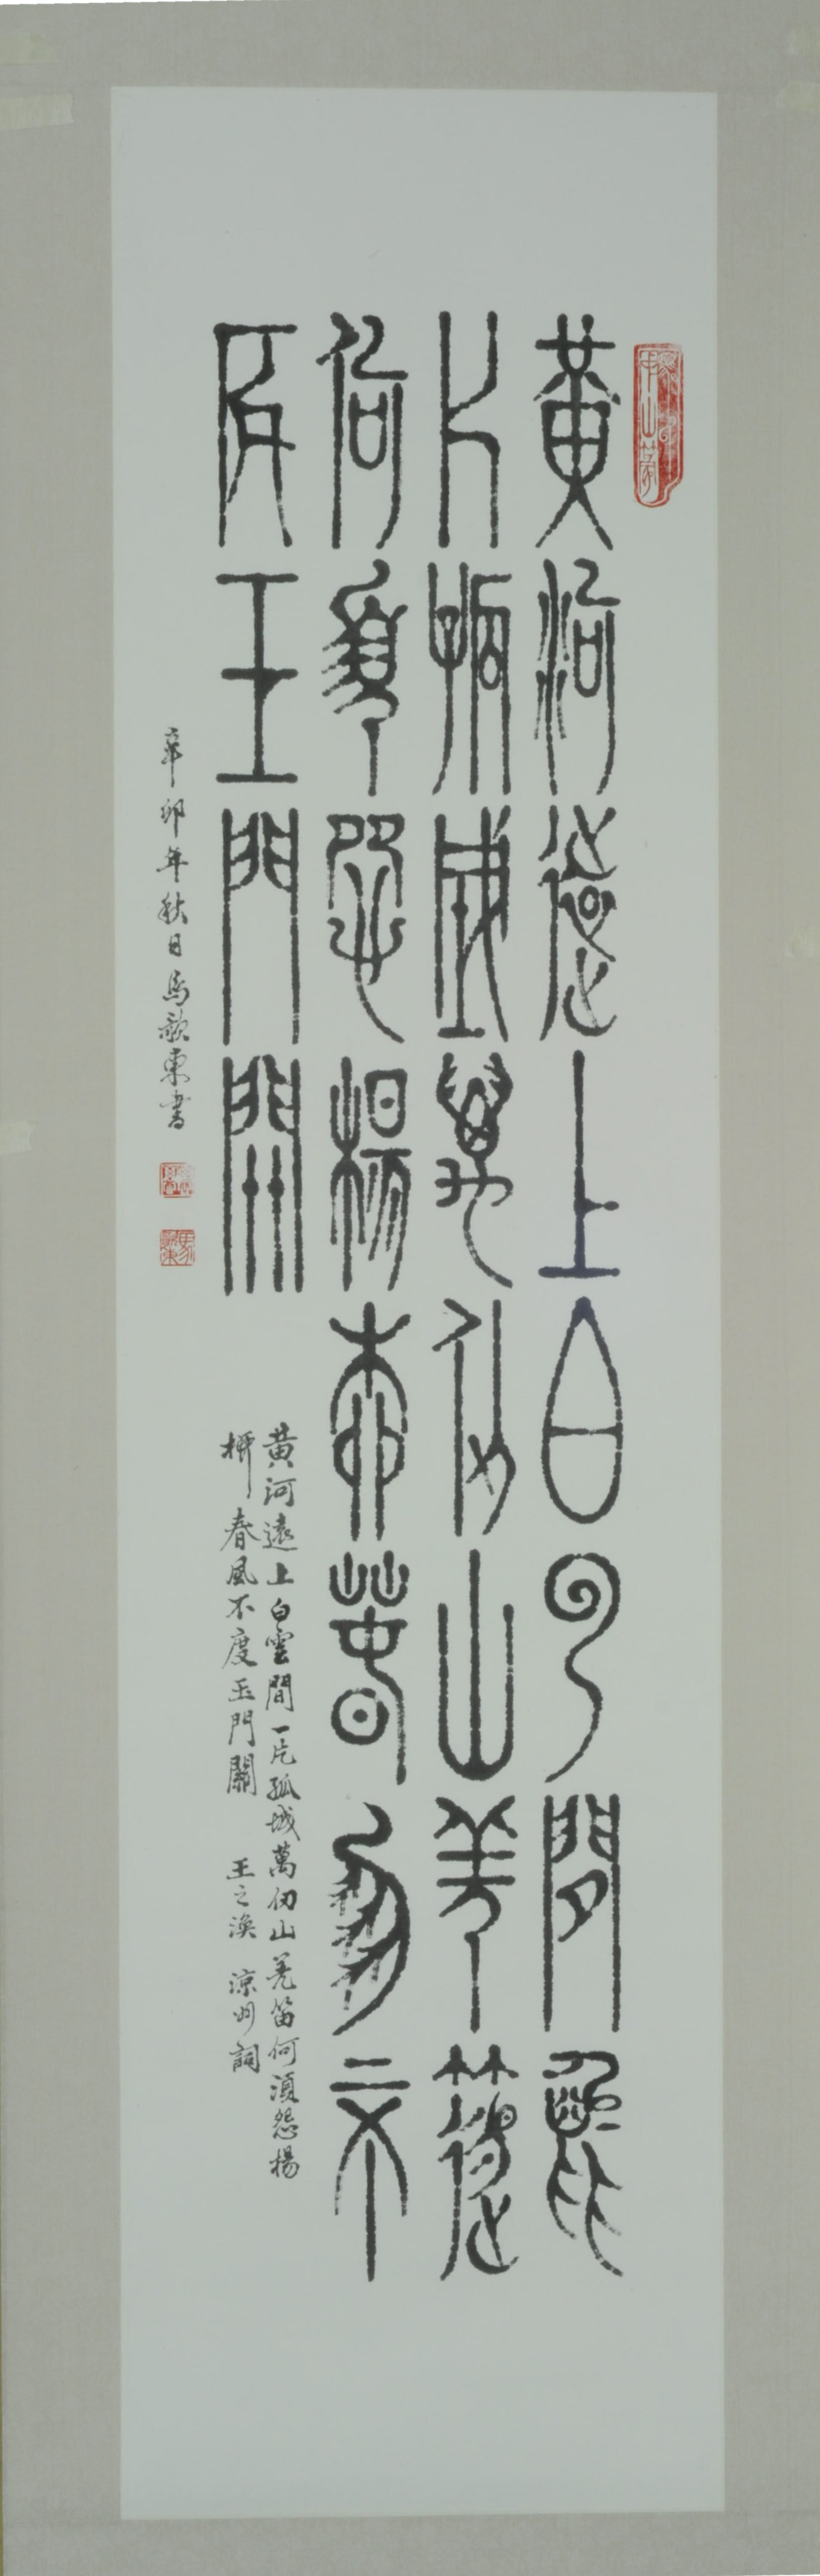 黃河遠上白云間一
片孤城萬仞山羌笛
何須怨楊柳春風不
度玉門關
黃河遠上白雲間一片孤城萬仞山羌笛何須怨楊
柳春風不度玉門關 王之渙 涼州詞
辛卯年秋日馬歌東書
馬歌東